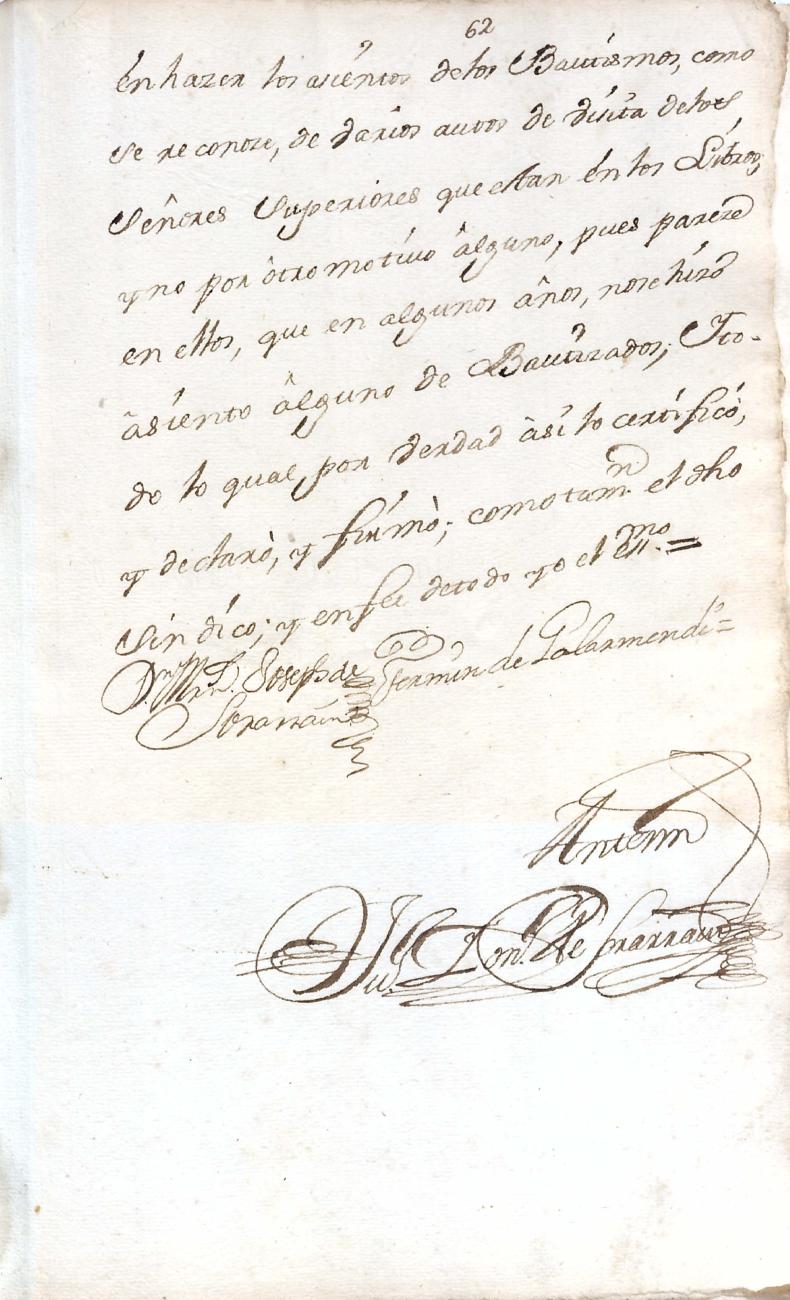 62
én hazer los asientos delos Bautismos, como
se reconoze, de varios autos de visita delos
señores superiores que estan én los Líbros;
y no por ôtro motívo âlguno, pues pareze
en ellos, que en algunos años, nose hízo
âsíento âlguno de Bautizados; Y to-
do lo qual, por verdad âsí lo certificó,
y declarò, y firmò; como tamn. el dho
sindíco; y en fee de todo yo el essno. =
Dn. Mrn. Joseph de
Ibarra
Fermin de Galarmendi =
Antemi
Ju.